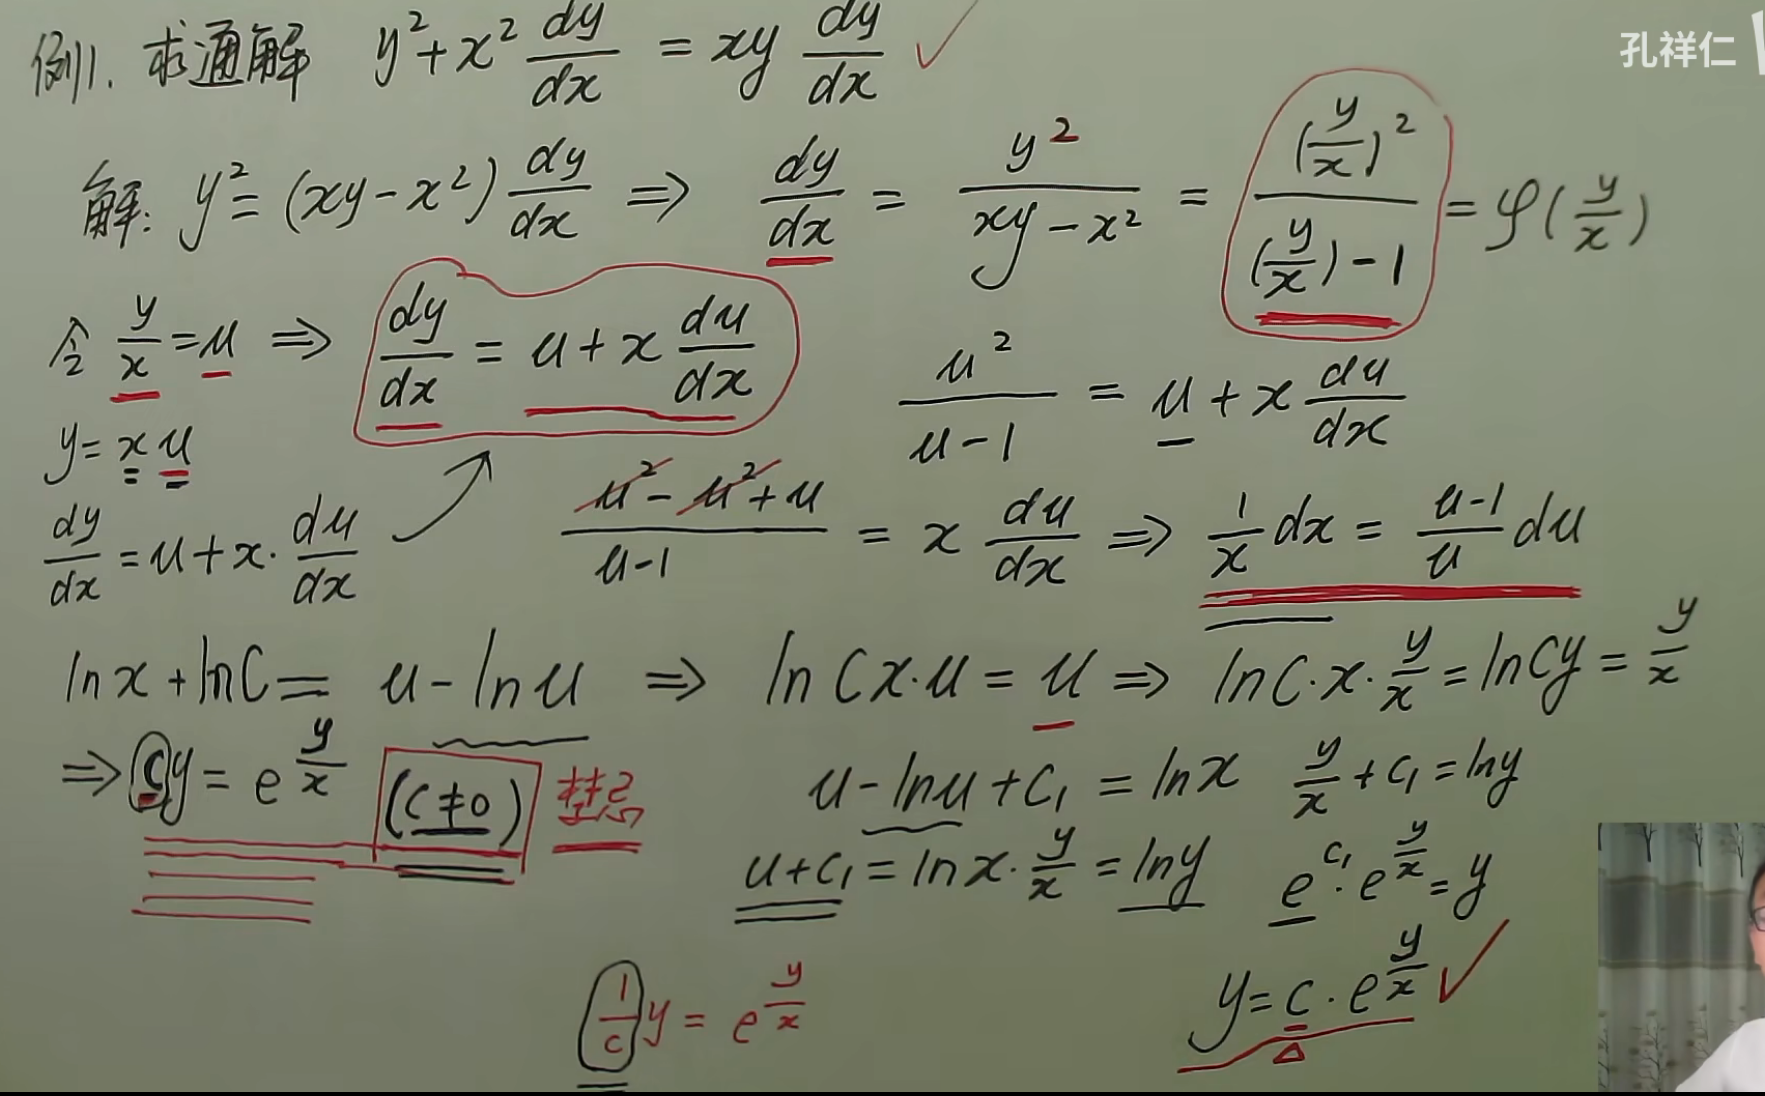 孔祥仁
例1. 求通解 y²+x² dy/dx = xy dy/dx ✓
解: y² = (xy-x²) dy/dx ⇒ dy/dx = y²/(xy-x²) = (y/x)²/((y/x)-1) = φ(y/x)
令 y/x = u ⇒ dy/dx = u + x du/dx
u²/(u-1) = u + x du/dx
y = xu
dy/dx = u + x· du/dx
(u²-u²+u)/(u-1) = x du/dx ⇒ 1/x dx = (u-1)/u du
ln x + ln C = u - ln u ⇒ ln Cx·u = u ⇒ ln C·x· y/x = ln Cy = y/x
⇒ Cy = e^(y/x) (C≠0)
u - ln u + C₁ = ln x
y/x + C₁ = ln y
u + C₁ = ln x· y/x = ln y
e^(C₁)·e^(y/x) = y
1/C y = e^(y/x)
y = C·e^(y/x) ✓